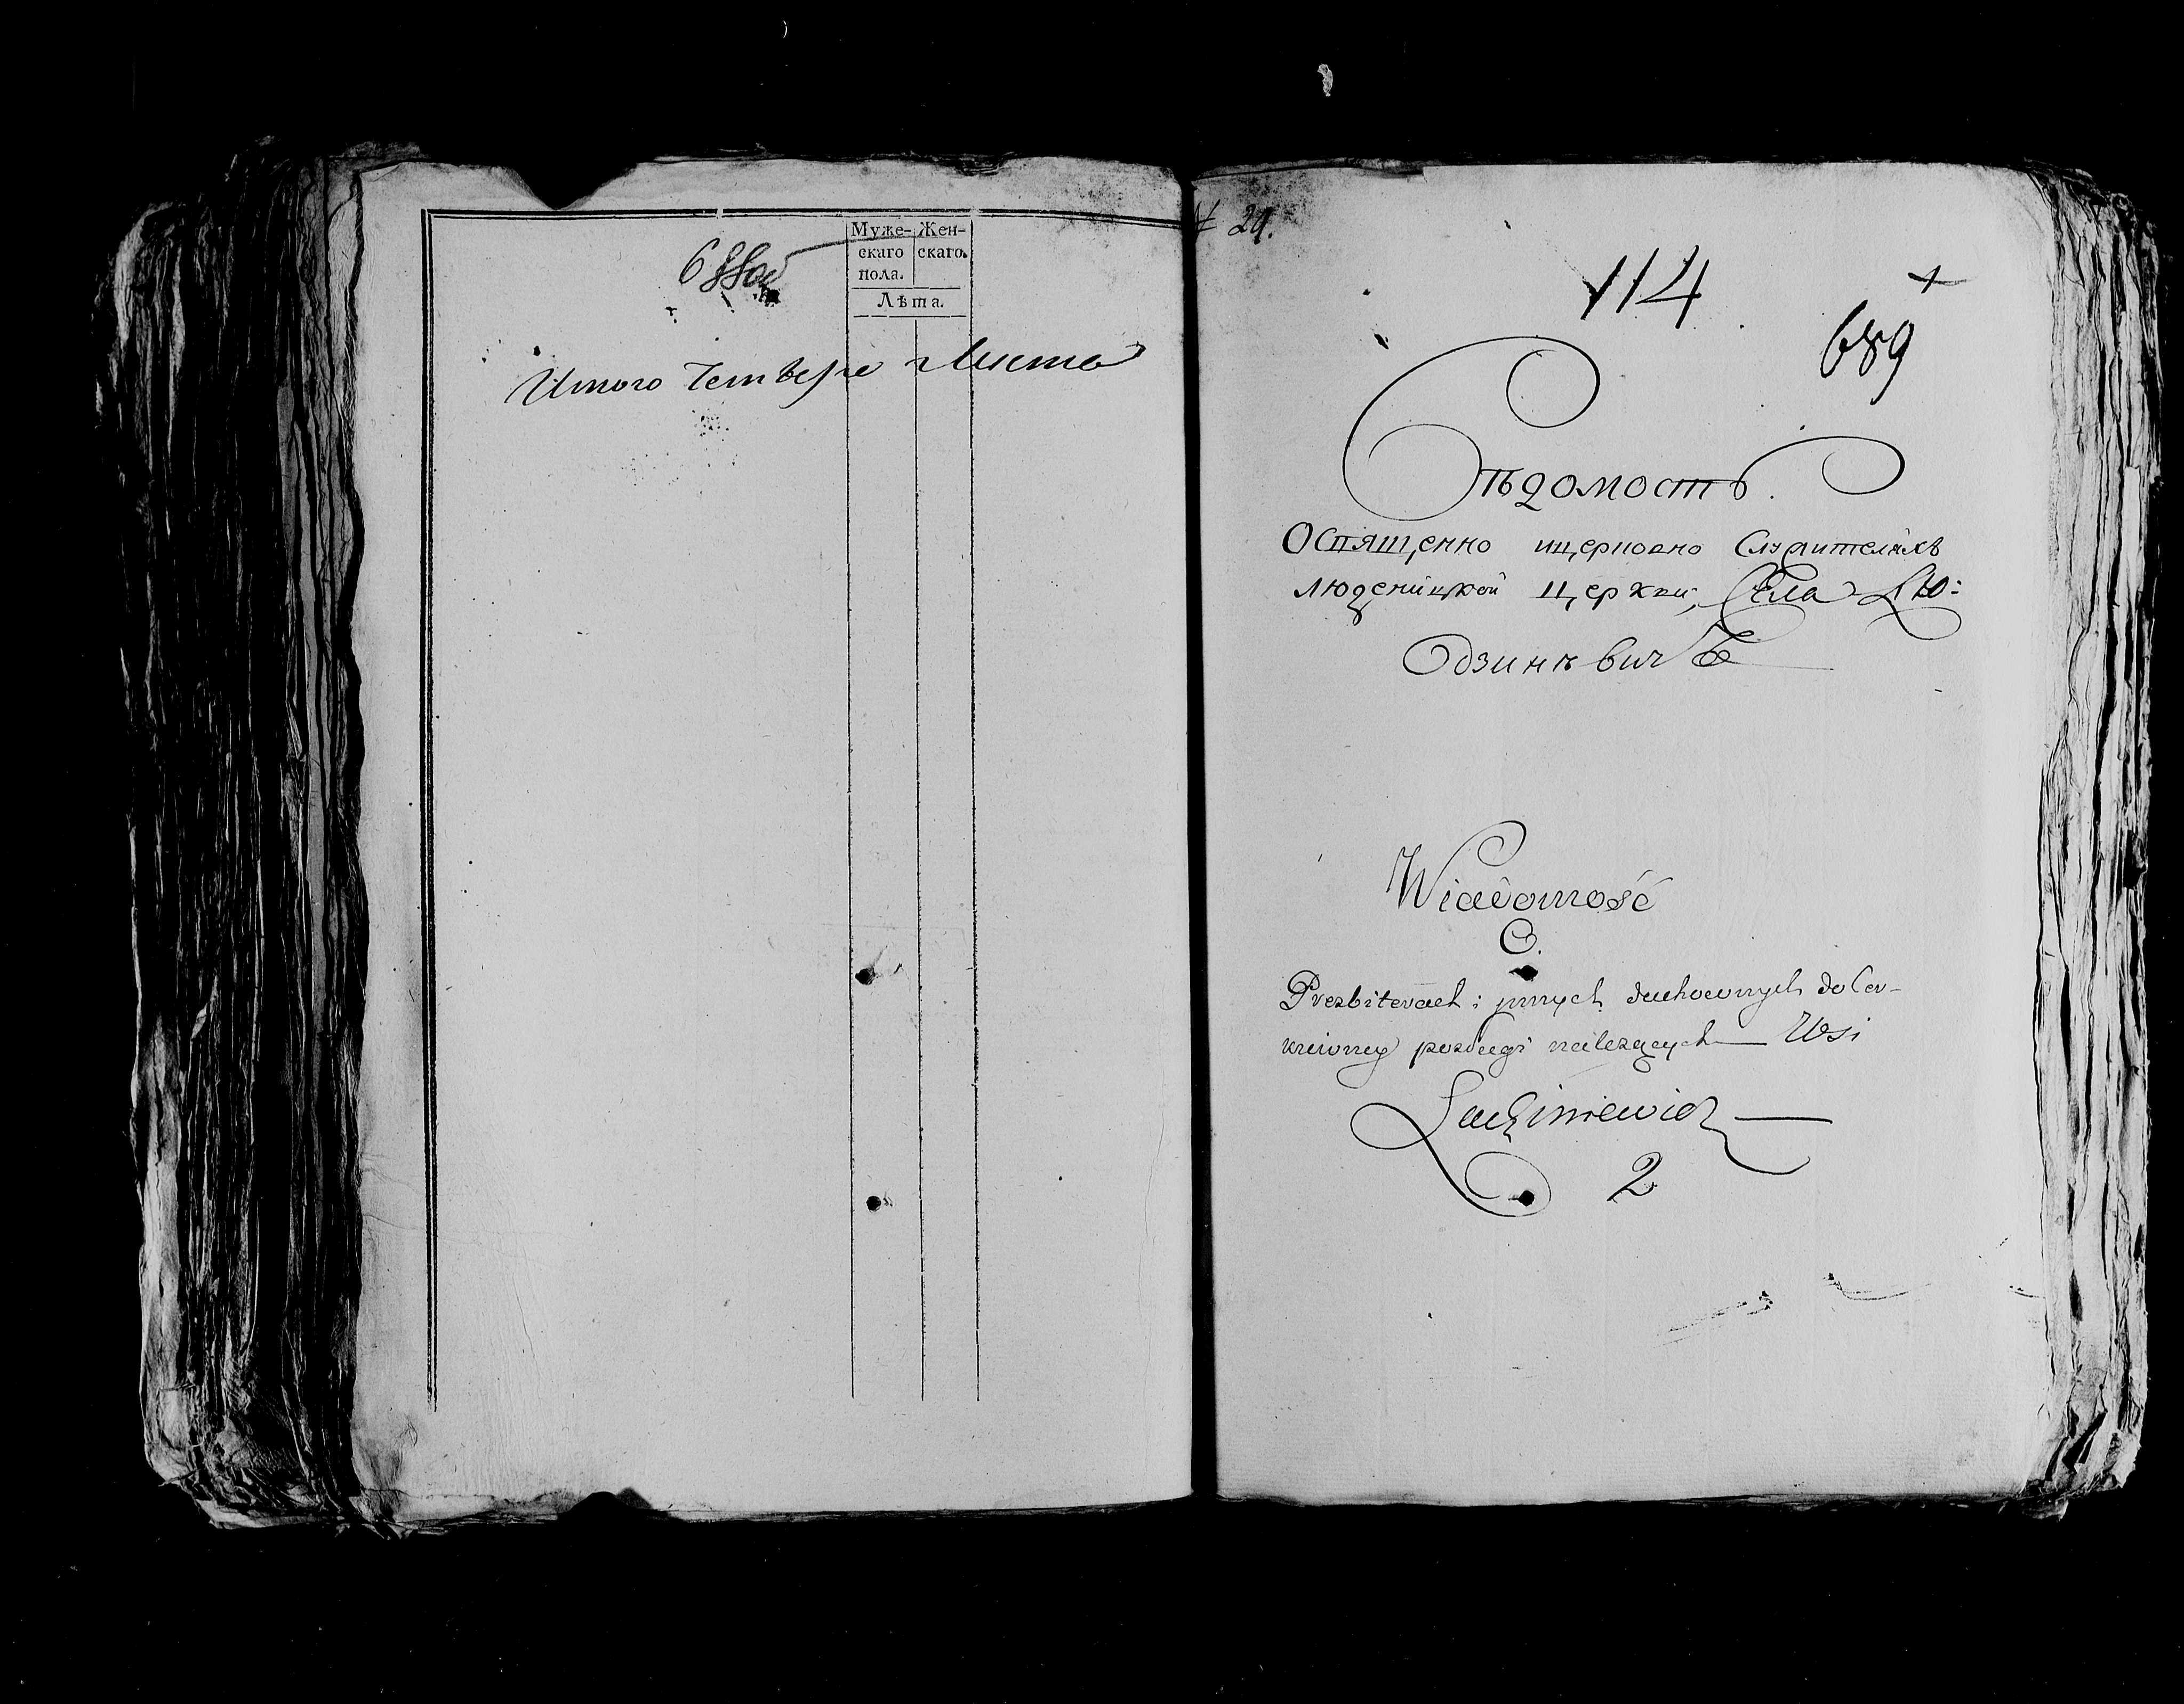 688об
Муже- Жен-
скаго скаго.
пола.
Лѣта.
Итого Четверо Листа
№ 29.
114
689
Вѣдомость.
Освященно ицерковно Служителяхъ
Люденицкой Церкви, Села Лю:
Одзинѣвичъ
Wiadomość
O.
Prezbiterach i jnnych duchownych do Cer-
kiewney posługi należących Wsi
Ludziniewicz
2